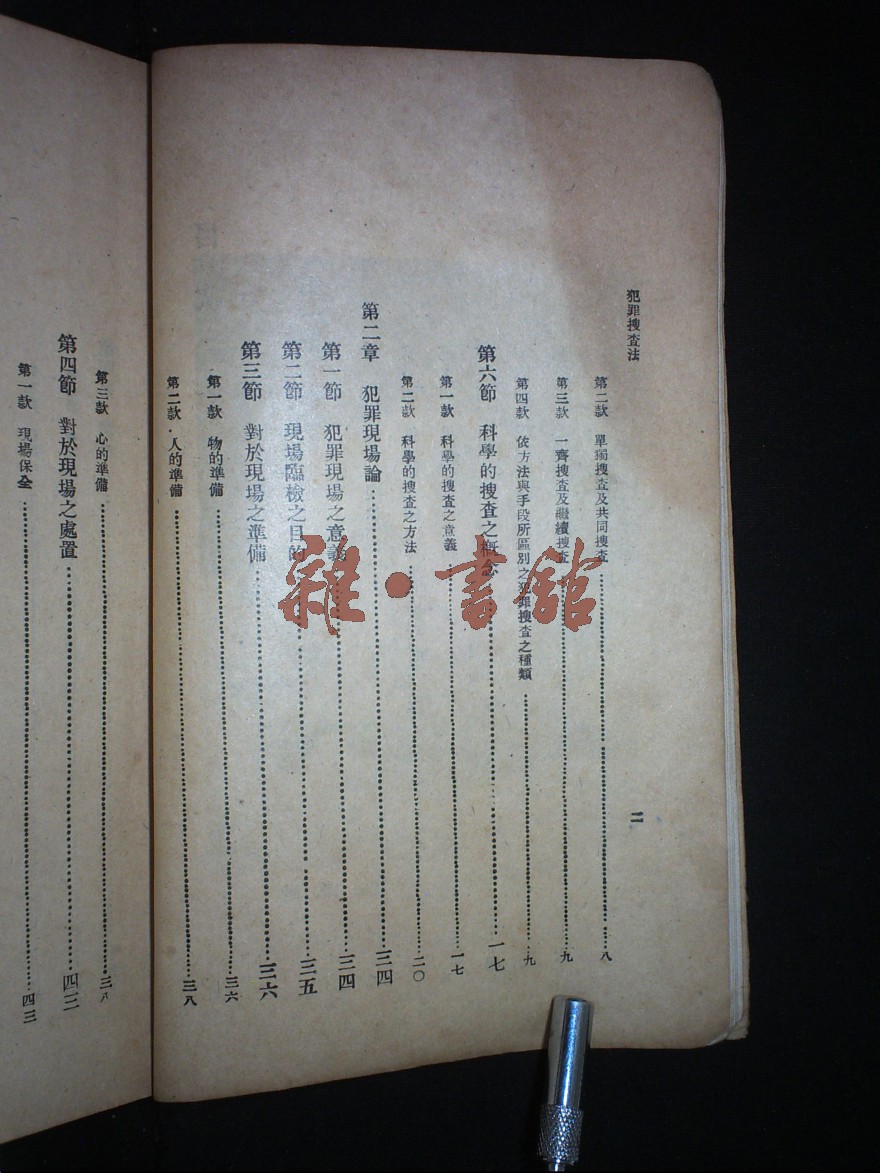 犯罪搜查法
二
第二款 單獨搜查及共同搜查……八
第三款 一齊搜查及繼續搜查……九
第四款 依方法與手段所區別之犯罪搜查之種類……九
第六節 科學的搜查之概念……一七
第一款 科學的搜查之意義……一七
第二款 科學的搜查之方法……二〇
第二章 犯罪現場論……三四
第一節 犯罪現場之意義……三四
第二節 現場臨檢之目的……三五
第三節 對於現場之準備……三六
第一款 物的準備……三六
第二款 人的準備……三八
第三款 心的準備……三八
第四節 對於現場之處置……四三
第一款 現場保全……四三
雜·書館